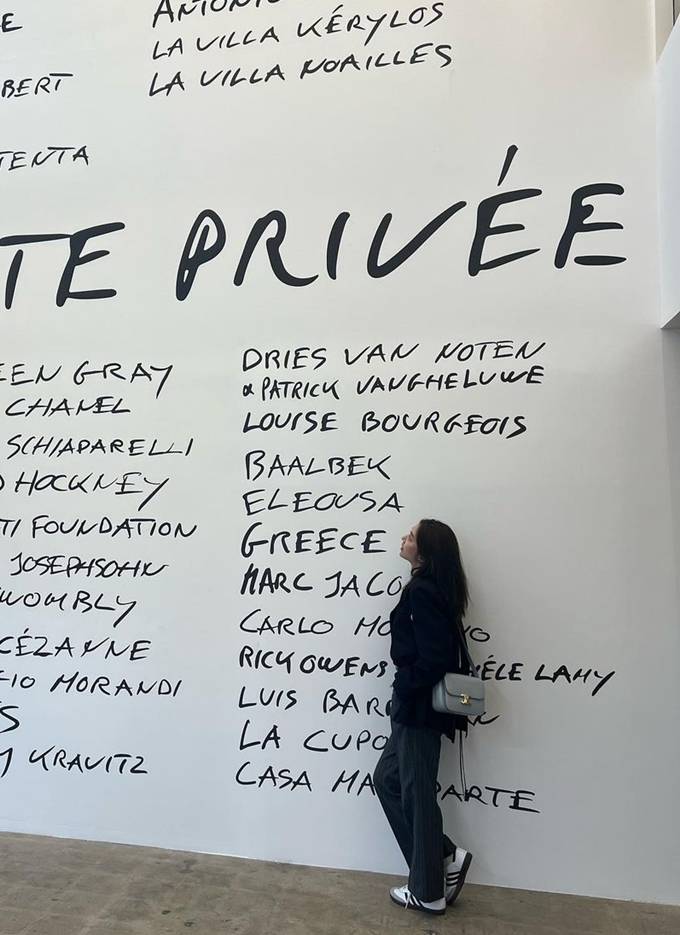 E
BERT
TENTA
ANTONI
LA VILLA KÉRYLOS
LA VILLA NOAILLES
TE PRIVÉE
EEN GRAY
CHANEL
SCHIAPARELLI
HOCKNEY
TI FOUNDATION
JOSEPHSOHN
WOMBLY
CÉZANNE
GIO MORANDI
S
KRAVITZ
DRIES VAN NOTEN
& PATRICK VANGHELUWE
LOUISE BOURGEOIS
BAALBEK
ELEOUSA
GREECE
MARC JACO
CARLO MO NO
RICK OWENS ÈLE LAMY
LUIS BARR AN
LA CUPO
CASA MA PARTE